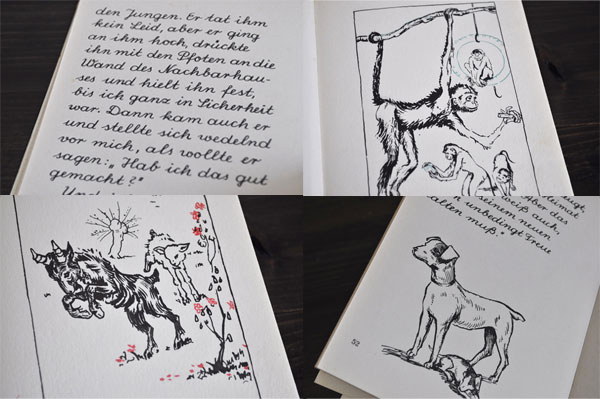 den Jungen. Er tat ihm
kein Leid, aber er ging
an ihm hoch, drückte
ihn mit den Pfoten an die
Wand des Nachbarhau-
ses und hielt ihn fest,
bis ich ganz in Sicherheit
war. Dann kam auch er
und stellte sich wedelnd
vor mich, als wollte er
sagen: „Hab ich das gut
gemacht?"
Und
Aber das
weiß auch
seinem neuen
unbedingte Treue
halten muß.
52